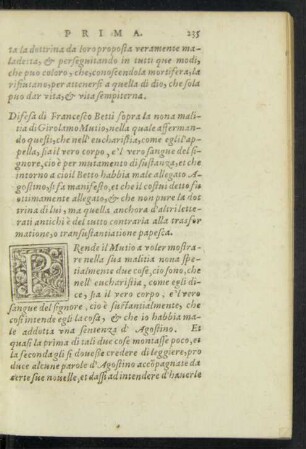 PRIMA. 235
ta la dottrina da loro proposta veramente ma-
ladetta, & perseguitando in tutti que modi,
che può coloro, che, conoscendola mortifera, la
rifiutano, per attenersi a quella di dio, che sola
può dar vita, & vita sempiterna.
Difesa di Francesco Betti sopra la nona mali
tia di Girolamo Mutio, nella quale afferman-
do questi, che nell'eucharistia, come egli l'ap-
pella, sia il vero corpo, e'l vero sangue del si-
gnore, cio è per mutamento di sustanza, et che
intorno a cio il Betto habbia male allegato A
gostino, si fa manifesto, et che il costui detto fu
ottimamente allegato, & che non pure la dot
trina di lui, ma quella anchora d'altri lette-
rati antichi è del tutto contraria alla trasfor
matione, o transustantiatione papesca.
PRende il Mutio a voler mostra-
re nella sua malitia nona spe-
tialmente due cose, cio sono, che
nell'eucharistia, come egli di-
ce, sia il vero corpo, e'l vero
sangue del signore, cio è sustantialmente, che
cosi intende egli la cosa, & che io habbia ma-
le addotta vna sentenza d'Agostino. Et
quasi la prima di tali due cose montasse poco, et
la seconda gli si douesse credere di leggiere, pro
duce alcune parole d'Agostino accōpagnate da
certe sue nouelle, et dassi ad intendere d'hauerle